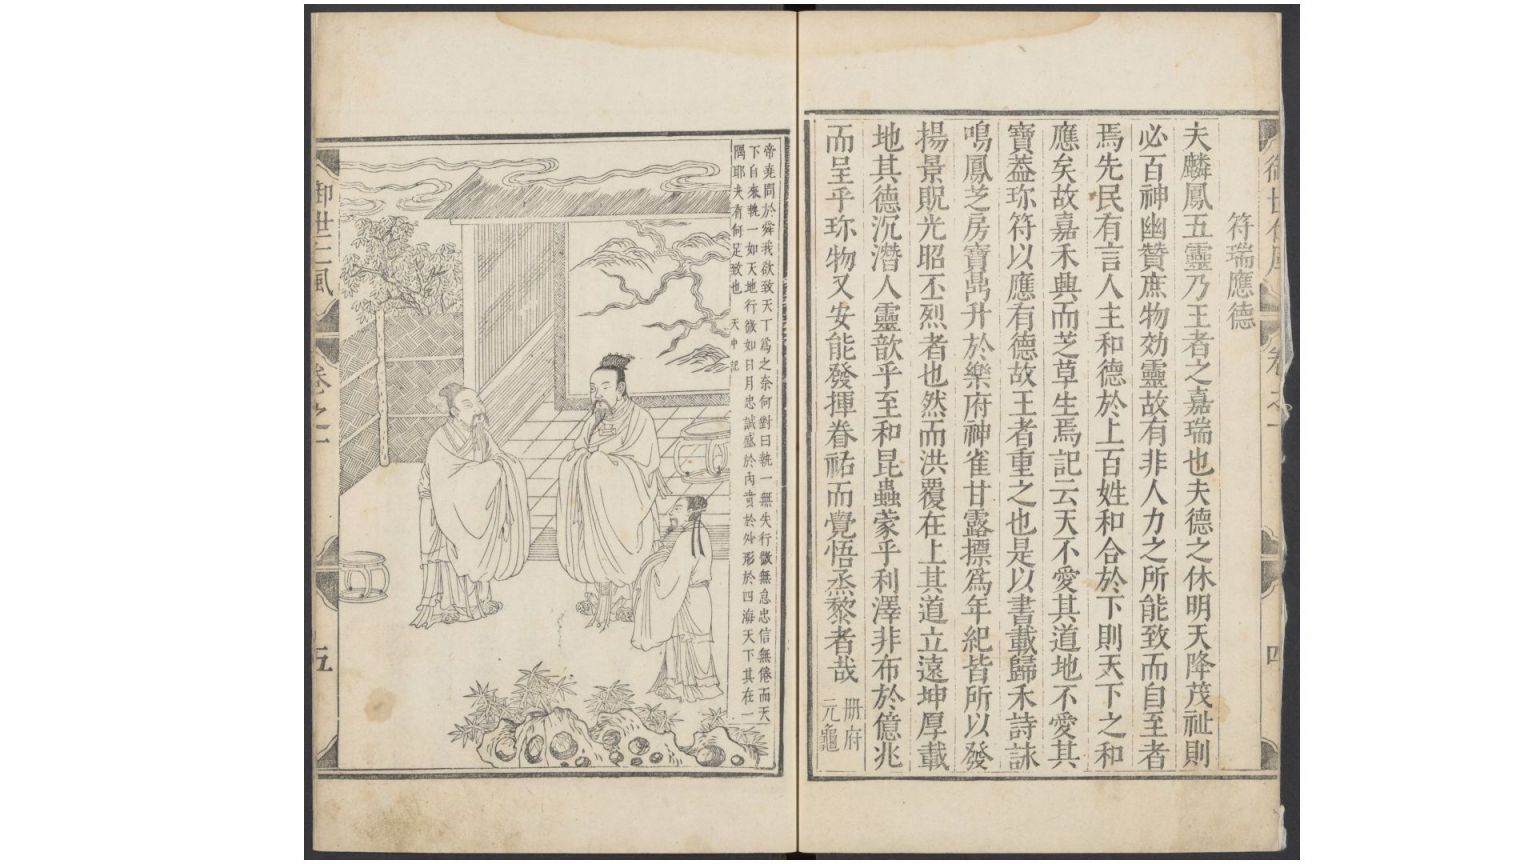 符瑞應德
夫麟鳳五靈乃王者之嘉瑞也夫德之休明天降茂祉則
必百神幽贊庶物効靈故有非人力之所能致而自至者
焉先民有言人主和德於上百姓和合於下則天下之和
應矣故嘉禾興而芝草生焉記云天不愛其道地不愛其
寶蓋珎符以應有德故王者重之也是以書載歸禾詩詠
鳴鳳芝房寶鼎升於樂府神雀甘露摽爲年紀皆所以發
揚景貺光昭丕烈者也然而洪覆在上其道立遠坤厚載
地其德沉潛人靈歆乎至和昆蟲蒙乎利澤非布於億兆
而呈乎珎物又安能發揮眷祐而覺悟烝黎者哉
冊府
元龜
卷之一
四
帝堯問於舜我欲致天下爲之奈何對曰執一無失行微無怠忠信無倦而天
下自來執一如天地行微如日月忠誠盛於內賁於外形於四海天下其在一
隅耶夫有何足致也 天中記
御世仁風
卷之一
五